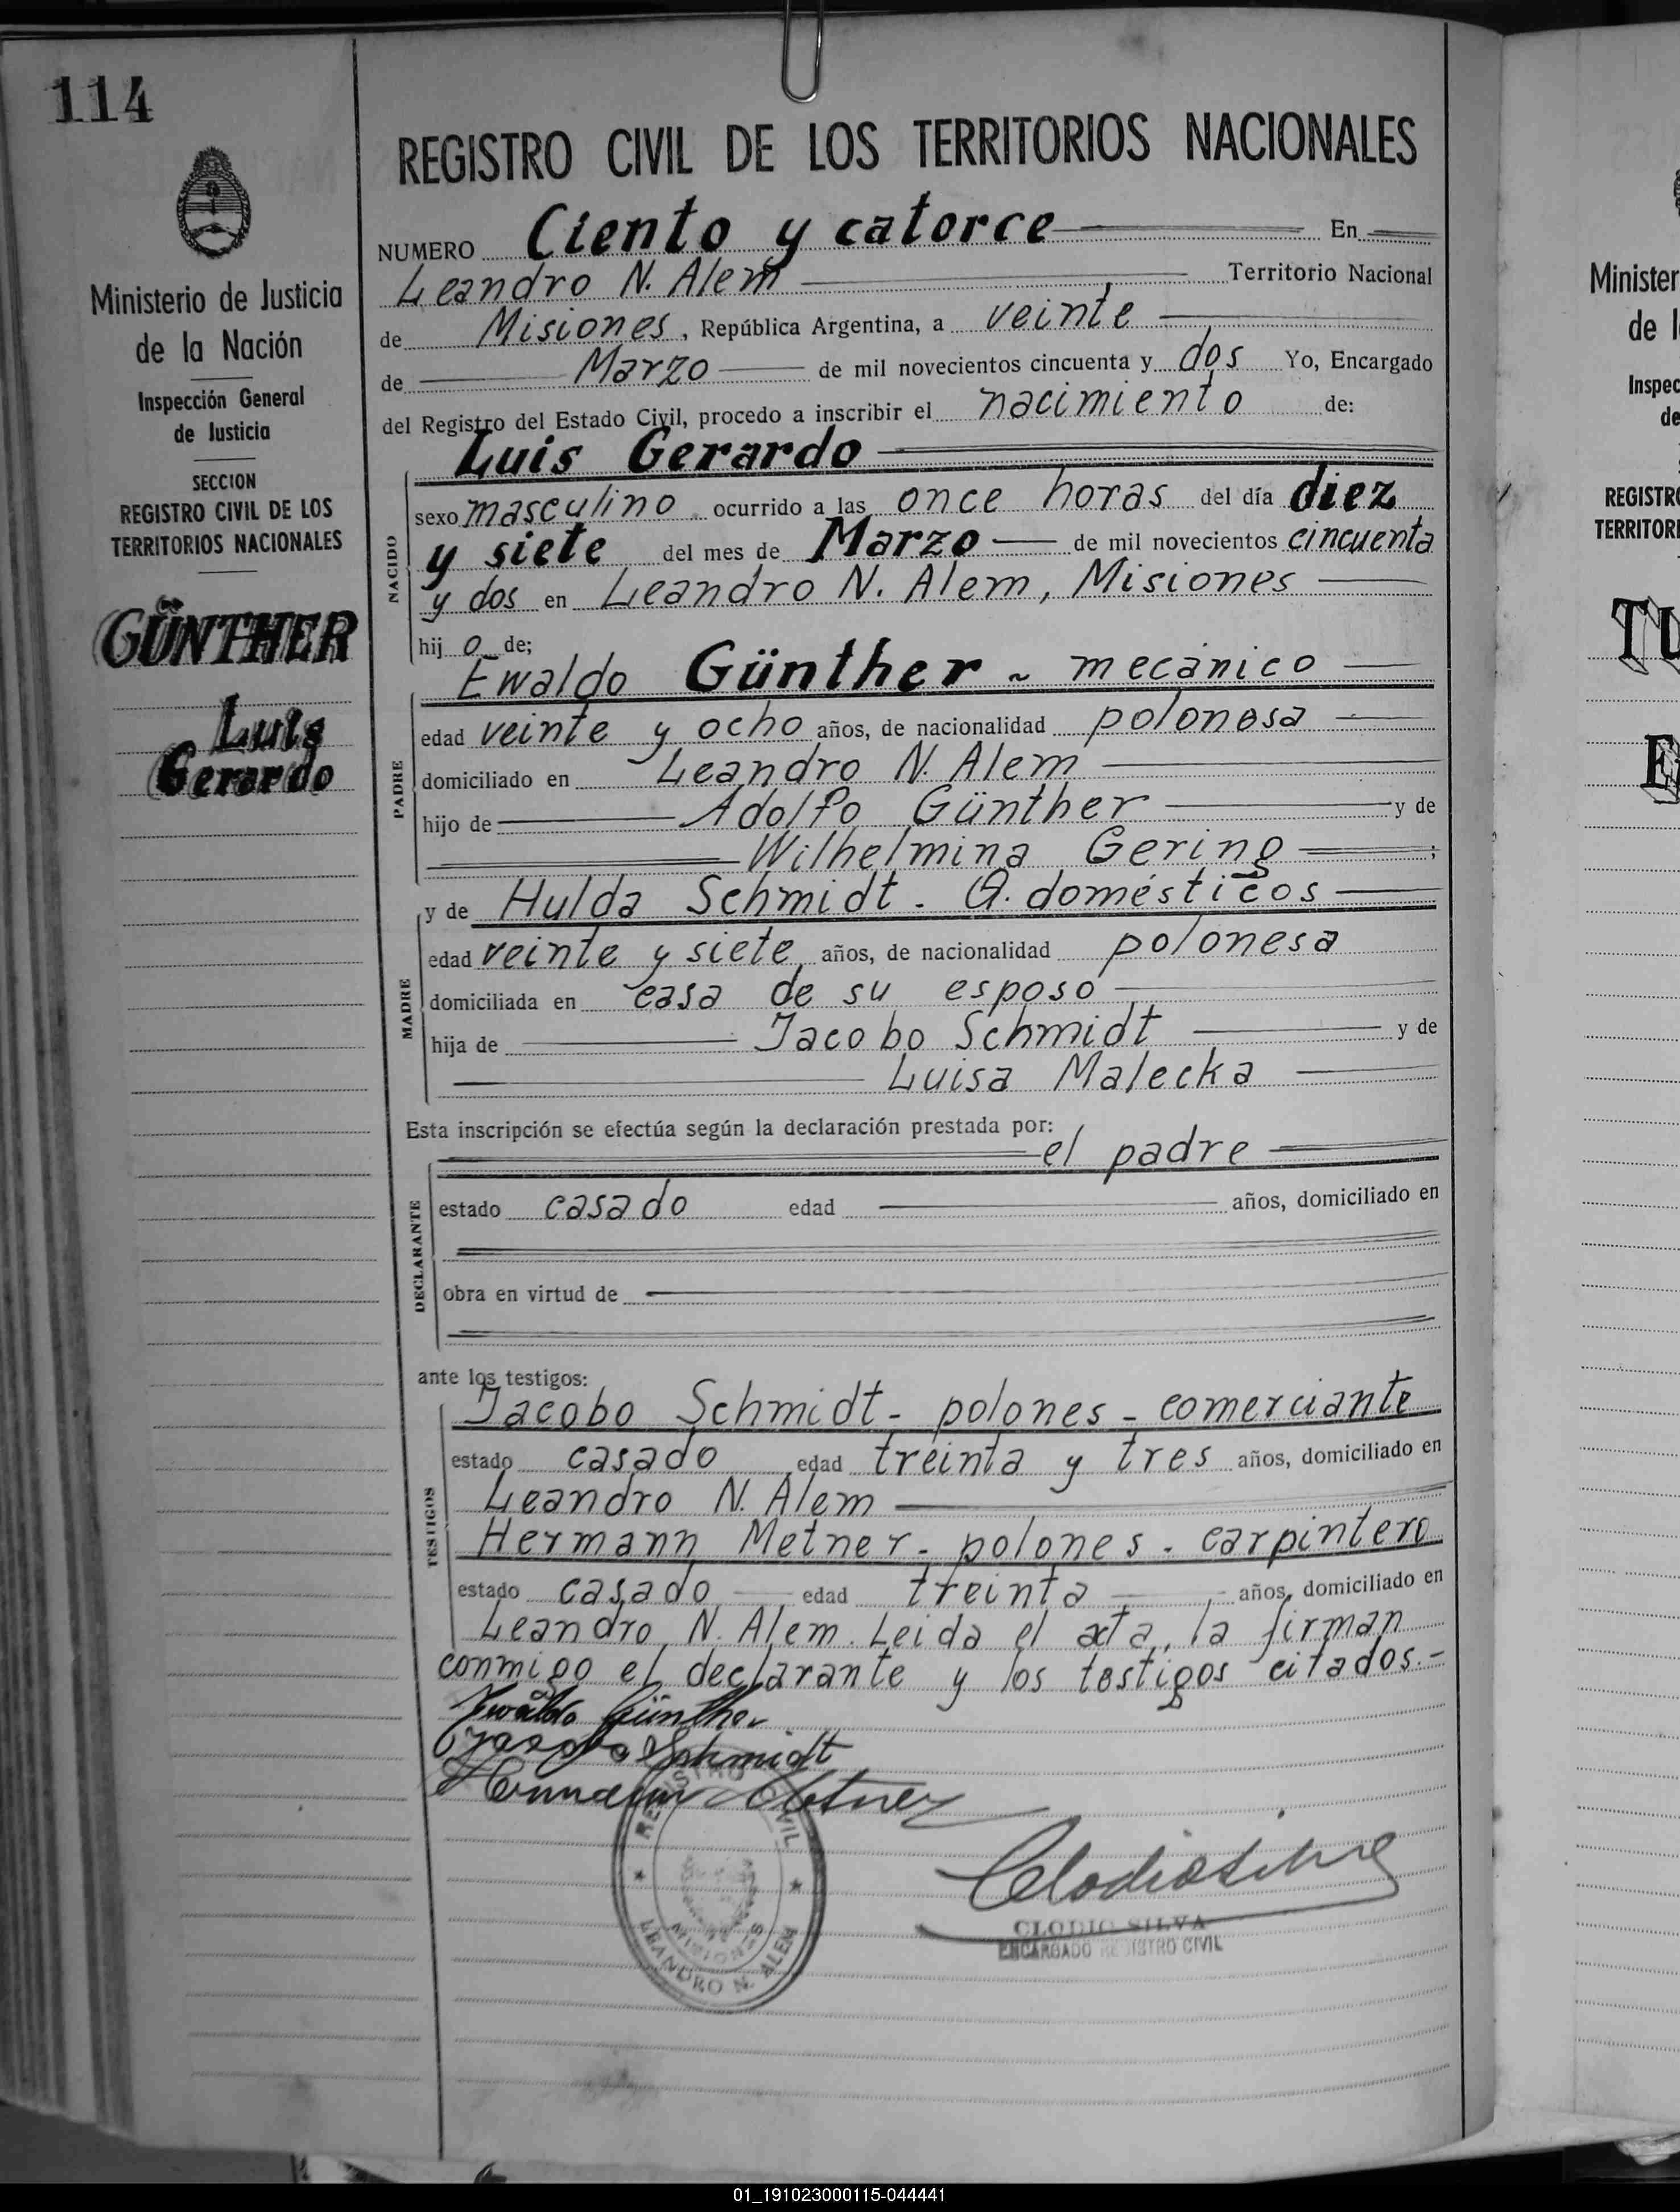 114
Ministerio de Justicia
de la Nación
Inspección General
de Justicia
SECCION
REGISTRO CIVIL DE LOS
TERRITORIOS NACIONALES
GÜNTHER
Luis
Gerardo
REGISTRO CIVIL DE LOS TERRITORIOS NACIONALES
NUMERO Ciento y catorce En
Leandro N. Alem Territorio Nacional
de Misiones, República Argentina, a veinte
de Marzo de mil novecientos cincuenta y dos Yo, Encargado
del Registro del Estado Civil, procedo a inscribir el nacimiento de:
Luis Gerardo
NACIDO
sexo masculino ocurrido a las once horas del día diez
y siete del mes de Marzo de mil novecientos cincuenta
y dos en Leandro N. Alem, Misiones
hij o de;
Ewaldo Günther ~ mecánico
PADRE
edad veinte y ocho años, de nacionalidad polonesa
domiciliado en Leandro N. Alem
hijo de Adolfo Günther y de
Wilhelmina Gering ;
MADRE
y de Hulda Schmidt - Q. domésticos
edad veinte y siete años, de nacionalidad polonesa
domiciliada en casa de su esposo
hija de Jacobo Schmidt y de
Luisa Malecka
Esta inscripción se efectúa según la declaración prestada por:
el padre
DECLARANTE
estado casado edad años, domiciliado en
obra en virtud de
ante los testigos:
TESTIGOS
Jacobo Schmidt - polones - comerciante
estado casado edad treinta y tres años, domiciliado en
Leandro N. Alem
Hermann Metner - polones - carpintero
estado casado edad treinta años, domiciliado en
Leandro N. Alem. Leida el acta, la firman
conmigo el declarante y los testigos citados.-
Ewaldo Günther
Jacobo Schmidt
Hermann Metner
REGISTRO CIVIL
MISIONES
LEANDRO N. ALEM
Clodio Silva
CLODIO SILVA
ENCARGADO REGISTRO CIVIL
Minister
de l
Inspec
de
REGISTR
TERRITOR
TU
E
01_191023000115-044441